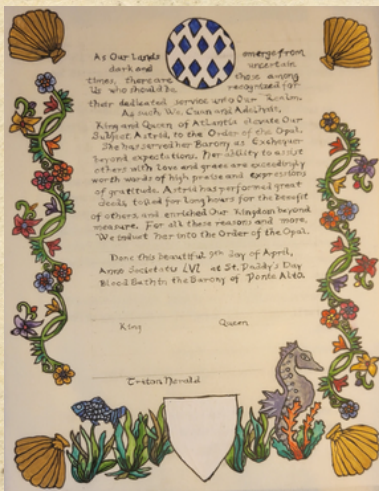 As Our Lands emerge from
dark and uncertain
times, there are those among
Us who should be recognized for
their dedicated service unto Our Realm.
As such We, Cuan and Adelhait,
King and Queen of Atlantia elevate Our
Subject, Astrid, to the Order of the Opal.
She has served her Barony as Exchequer
beyond expectations. Her ability to assist
others with love and grace are exceedingly
worth words of high praise and expressions
of gratitude. Astrid has performed great
deeds, toiled for long hours for the benefit
of others, and enriched Our Kingdom beyond
measure. For all these reasons and more,
We induct her into the Order of the Opal.
Done this beautiful 9th day of April,
Anno Societatis LVI at St. Paddy's Day
Blood Bath in the Barony of Ponte Alto.
King Queen
Triton Herald